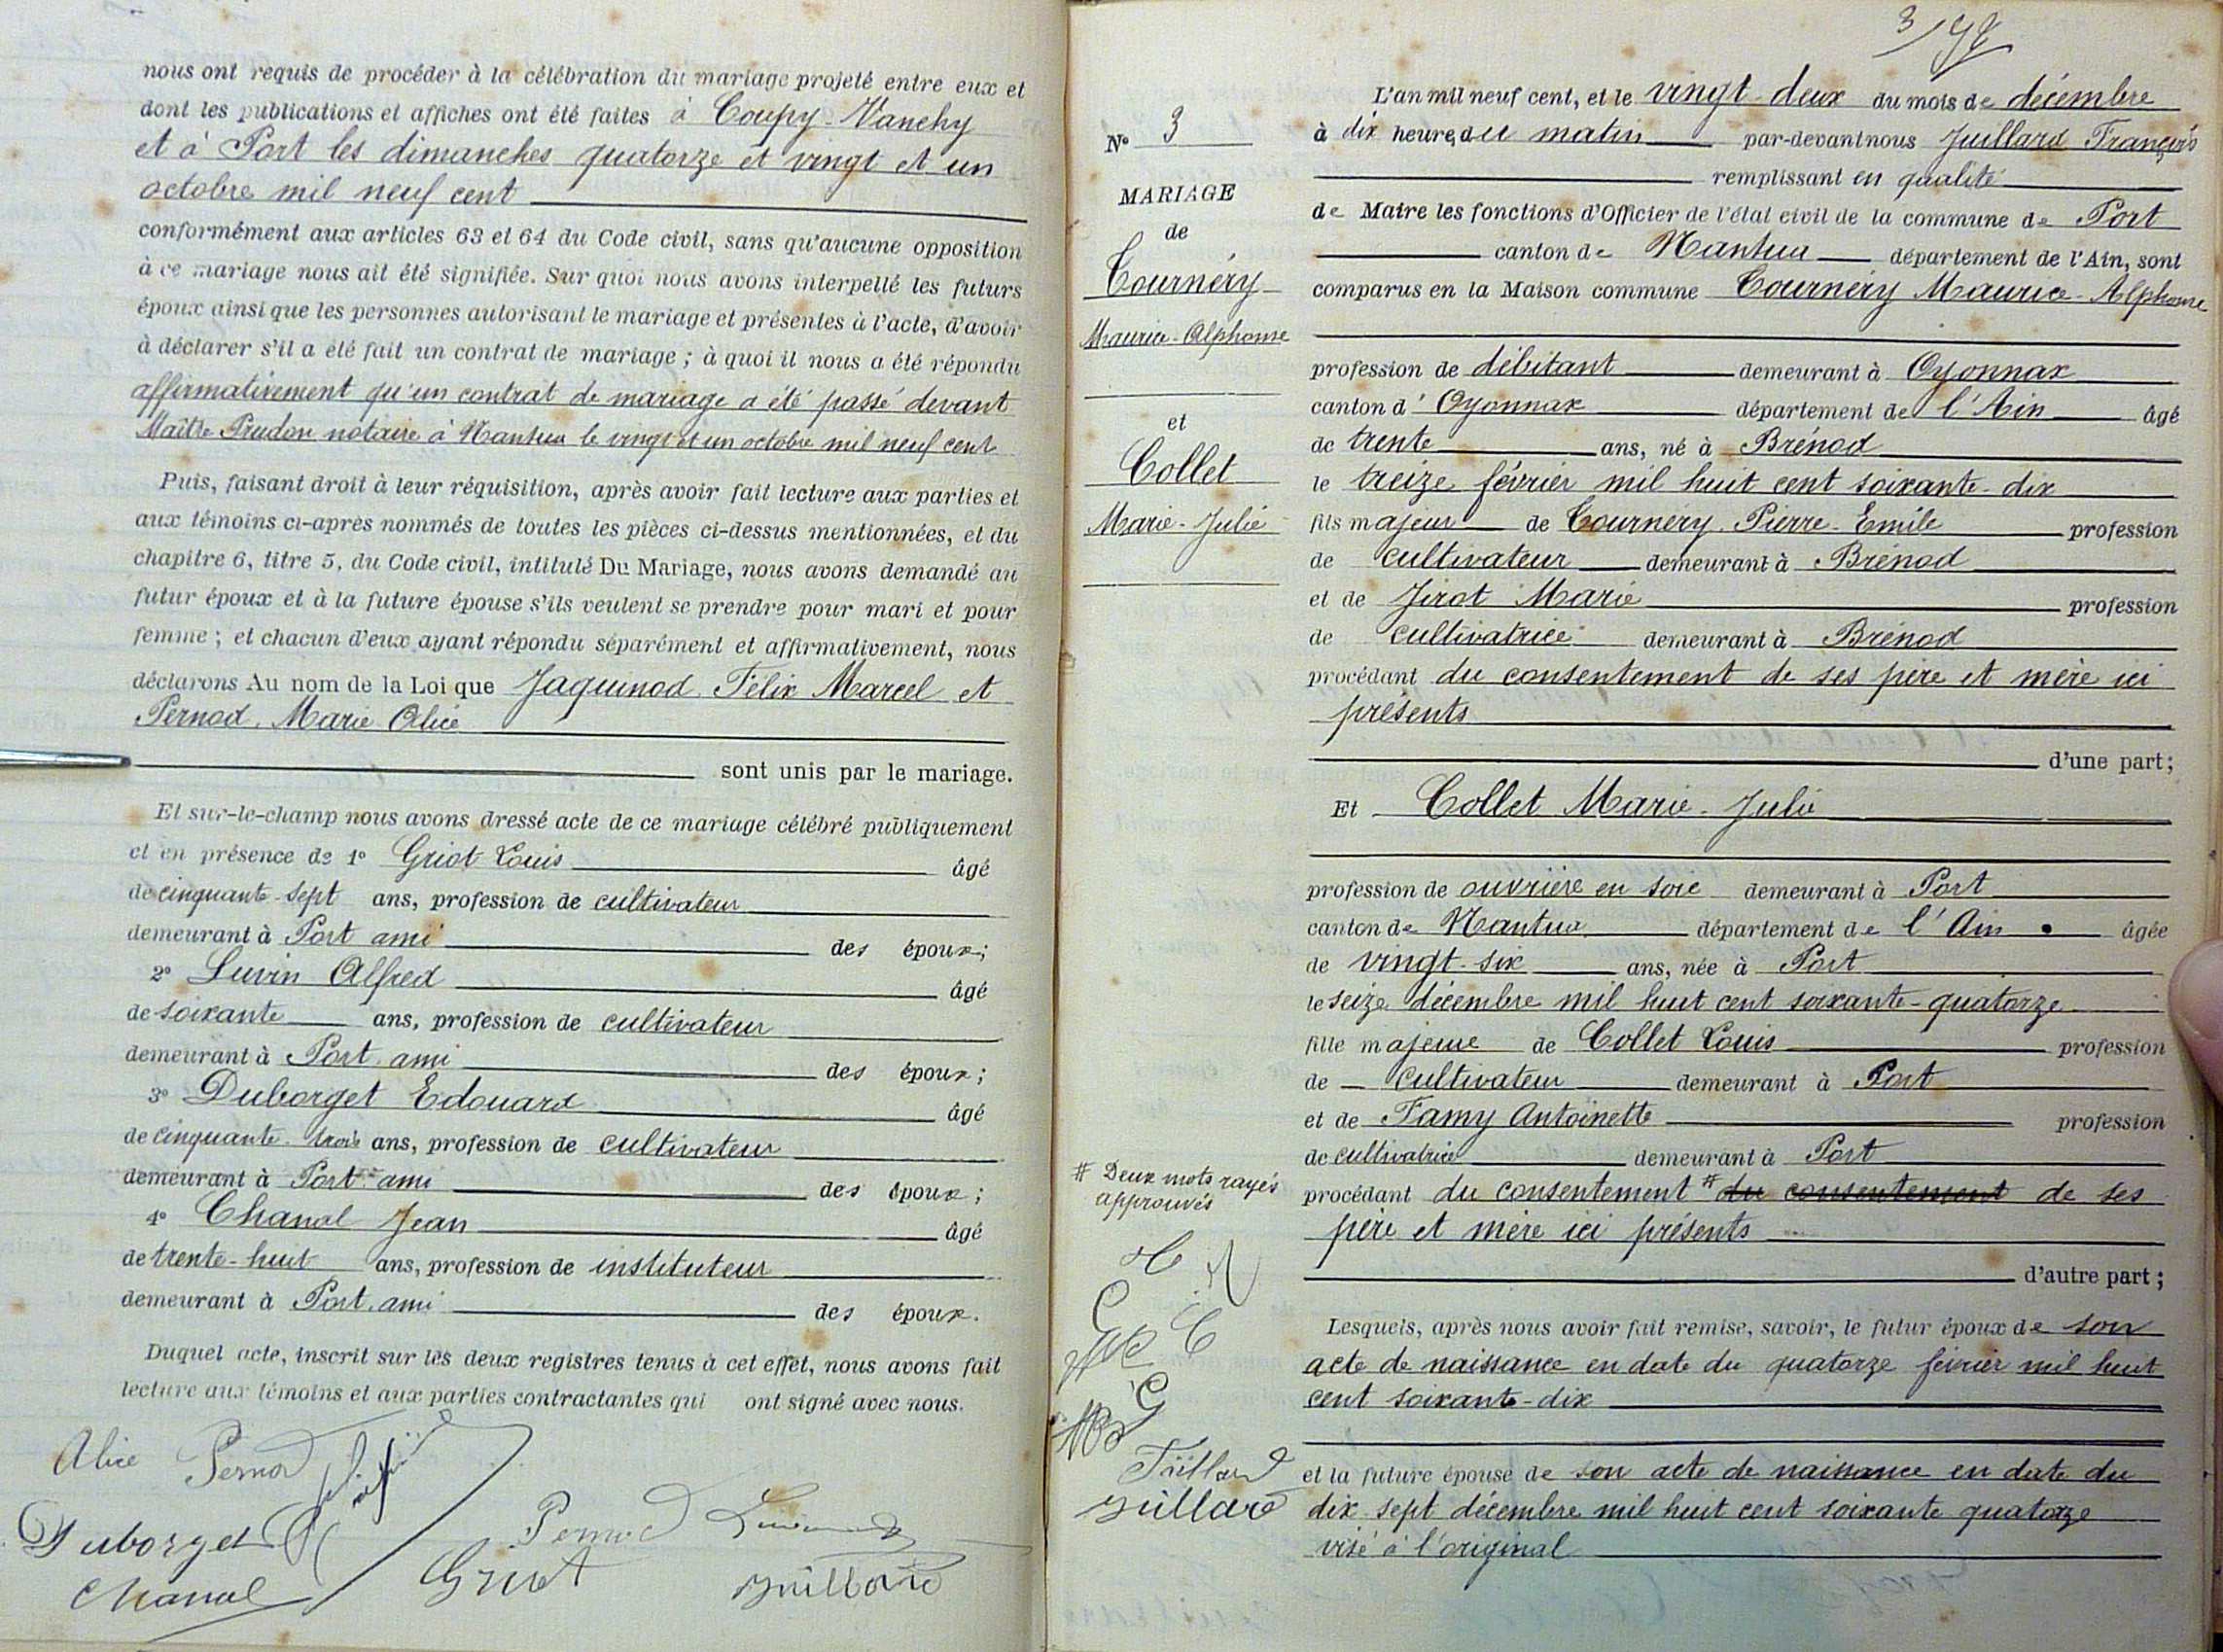 nous ont requis de procéder à la célébration du mariage projeté entre eux et
dont les publications et affiches ont été faites à Coupy-Vanchy
et à Port les dimanches quatorze et vingt et un
octobre mil neuf cent
conformément aux articles 63 et 64 du Code civil, sans qu'aucune opposition
à ce mariage nous ait été signifiée. Sur quoi nous avons interpellé les futurs
époux ainsi que les personnes autorisant le mariage et présentes à l'acte, d'avoir
à déclarer s'il a été fait un contrat de mariage ; à quoi il nous a été répondu
affirmativement qu'un contrat de mariage a été passé devant
Maître Prudon notaire à Nantua le vingt et un octobre mil neuf cent
Puis, faisant droit à leur réquisition, après avoir fait lecture aux parties et
aux témoins ci-après nommés de toutes les pièces ci-dessus mentionnées, et du
chapitre 6, titre 5, du Code civil, intitulé Du Mariage, nous avons demandé au
futur époux et à la future épouse s'ils veulent se prendre pour mari et pour
femme ; et chacun d'eux ayant répondu séparément et affirmativement, nous
déclarons Au nom de la Loi que Jaquinod Félix Marcel et
Pernod Marie Alice
sont unis par le mariage.
Et sur-le-champ nous avons dressé acte de ce mariage célébré publiquement
et en présence de 1° Griot Louis âgé
de cinquante-sept ans, profession de cultivateur
demeurant à Port ami des époux;
2° Luvin Alfred âgé
de soixante ans, profession de cultivateur
demeurant à Port ami des époux;
3° Duborget Edouard âgé
de cinquante-trois ans, profession de cultivateur
demeurant à Port ami des époux;
4° Chanal Jean âgé
de trente-huit ans, profession de instituteur
demeurant à Port ami des époux.
Duquel acte, inscrit sur les deux registres tenus à cet effet, nous avons fait
lecture aux témoins et aux parties contractantes qui ont signé avec nous.
Alice Pernod
Duborget Pernod
Chanal Griot Juillard
3
N° 3
MARIAGE
de
Tournéry
Maurice-Alphonse
et
Collet
Marie-Julie
L'an mil neuf cent, et le vingt-deux du mois de décembre
à dix heures du matin par-devant nous Juillard François
remplissant en qualité
de Maire les fonctions d'Officier de l'état civil de la commune de Port
canton de Nantua département de l'Ain, sont
comparus en la Maison commune Tournéry Maurice-Alphonse
profession de débitant demeurant à Oyonnax
canton d'Oyonnax département de l'Ain âgé
de trente ans, né à Brénod
le treize février mil huit cent soixante-dix
fils majeur de Tournéry Pierre-Emile profession
de cultivateur demeurant à Brénod
et de Jirot Marie profession
de cultivatrice demeurant à Brénod
procédant du consentement de ses père et mère ici
présents
d'une part;
Et Collet Marie-Julie
profession de ouvrière en soie demeurant à Port
canton de Nantua département de l'Ain âgée
de vingt-six ans, née à Port
le seize décembre mil huit cent soixante-quatorze
fille majeure de Collet Louis profession
de cultivateur demeurant à Port
et de Famy Antoinette profession
de cultivatrice demeurant à Port
procédant du consentement # du consentement de ses
père et mère ici présents
d'autre part ;
# Deux mots rayés
approuvés
Juillard
Lesquels, après nous avoir fait remise, savoir, le futur époux de son
acte de naissance en date du quatorze février mil huit
cent soixante-dix
et la future épouse de son acte de naissance en date du
dix sept décembre mil huit cent soixante quatorze
visé à l'original